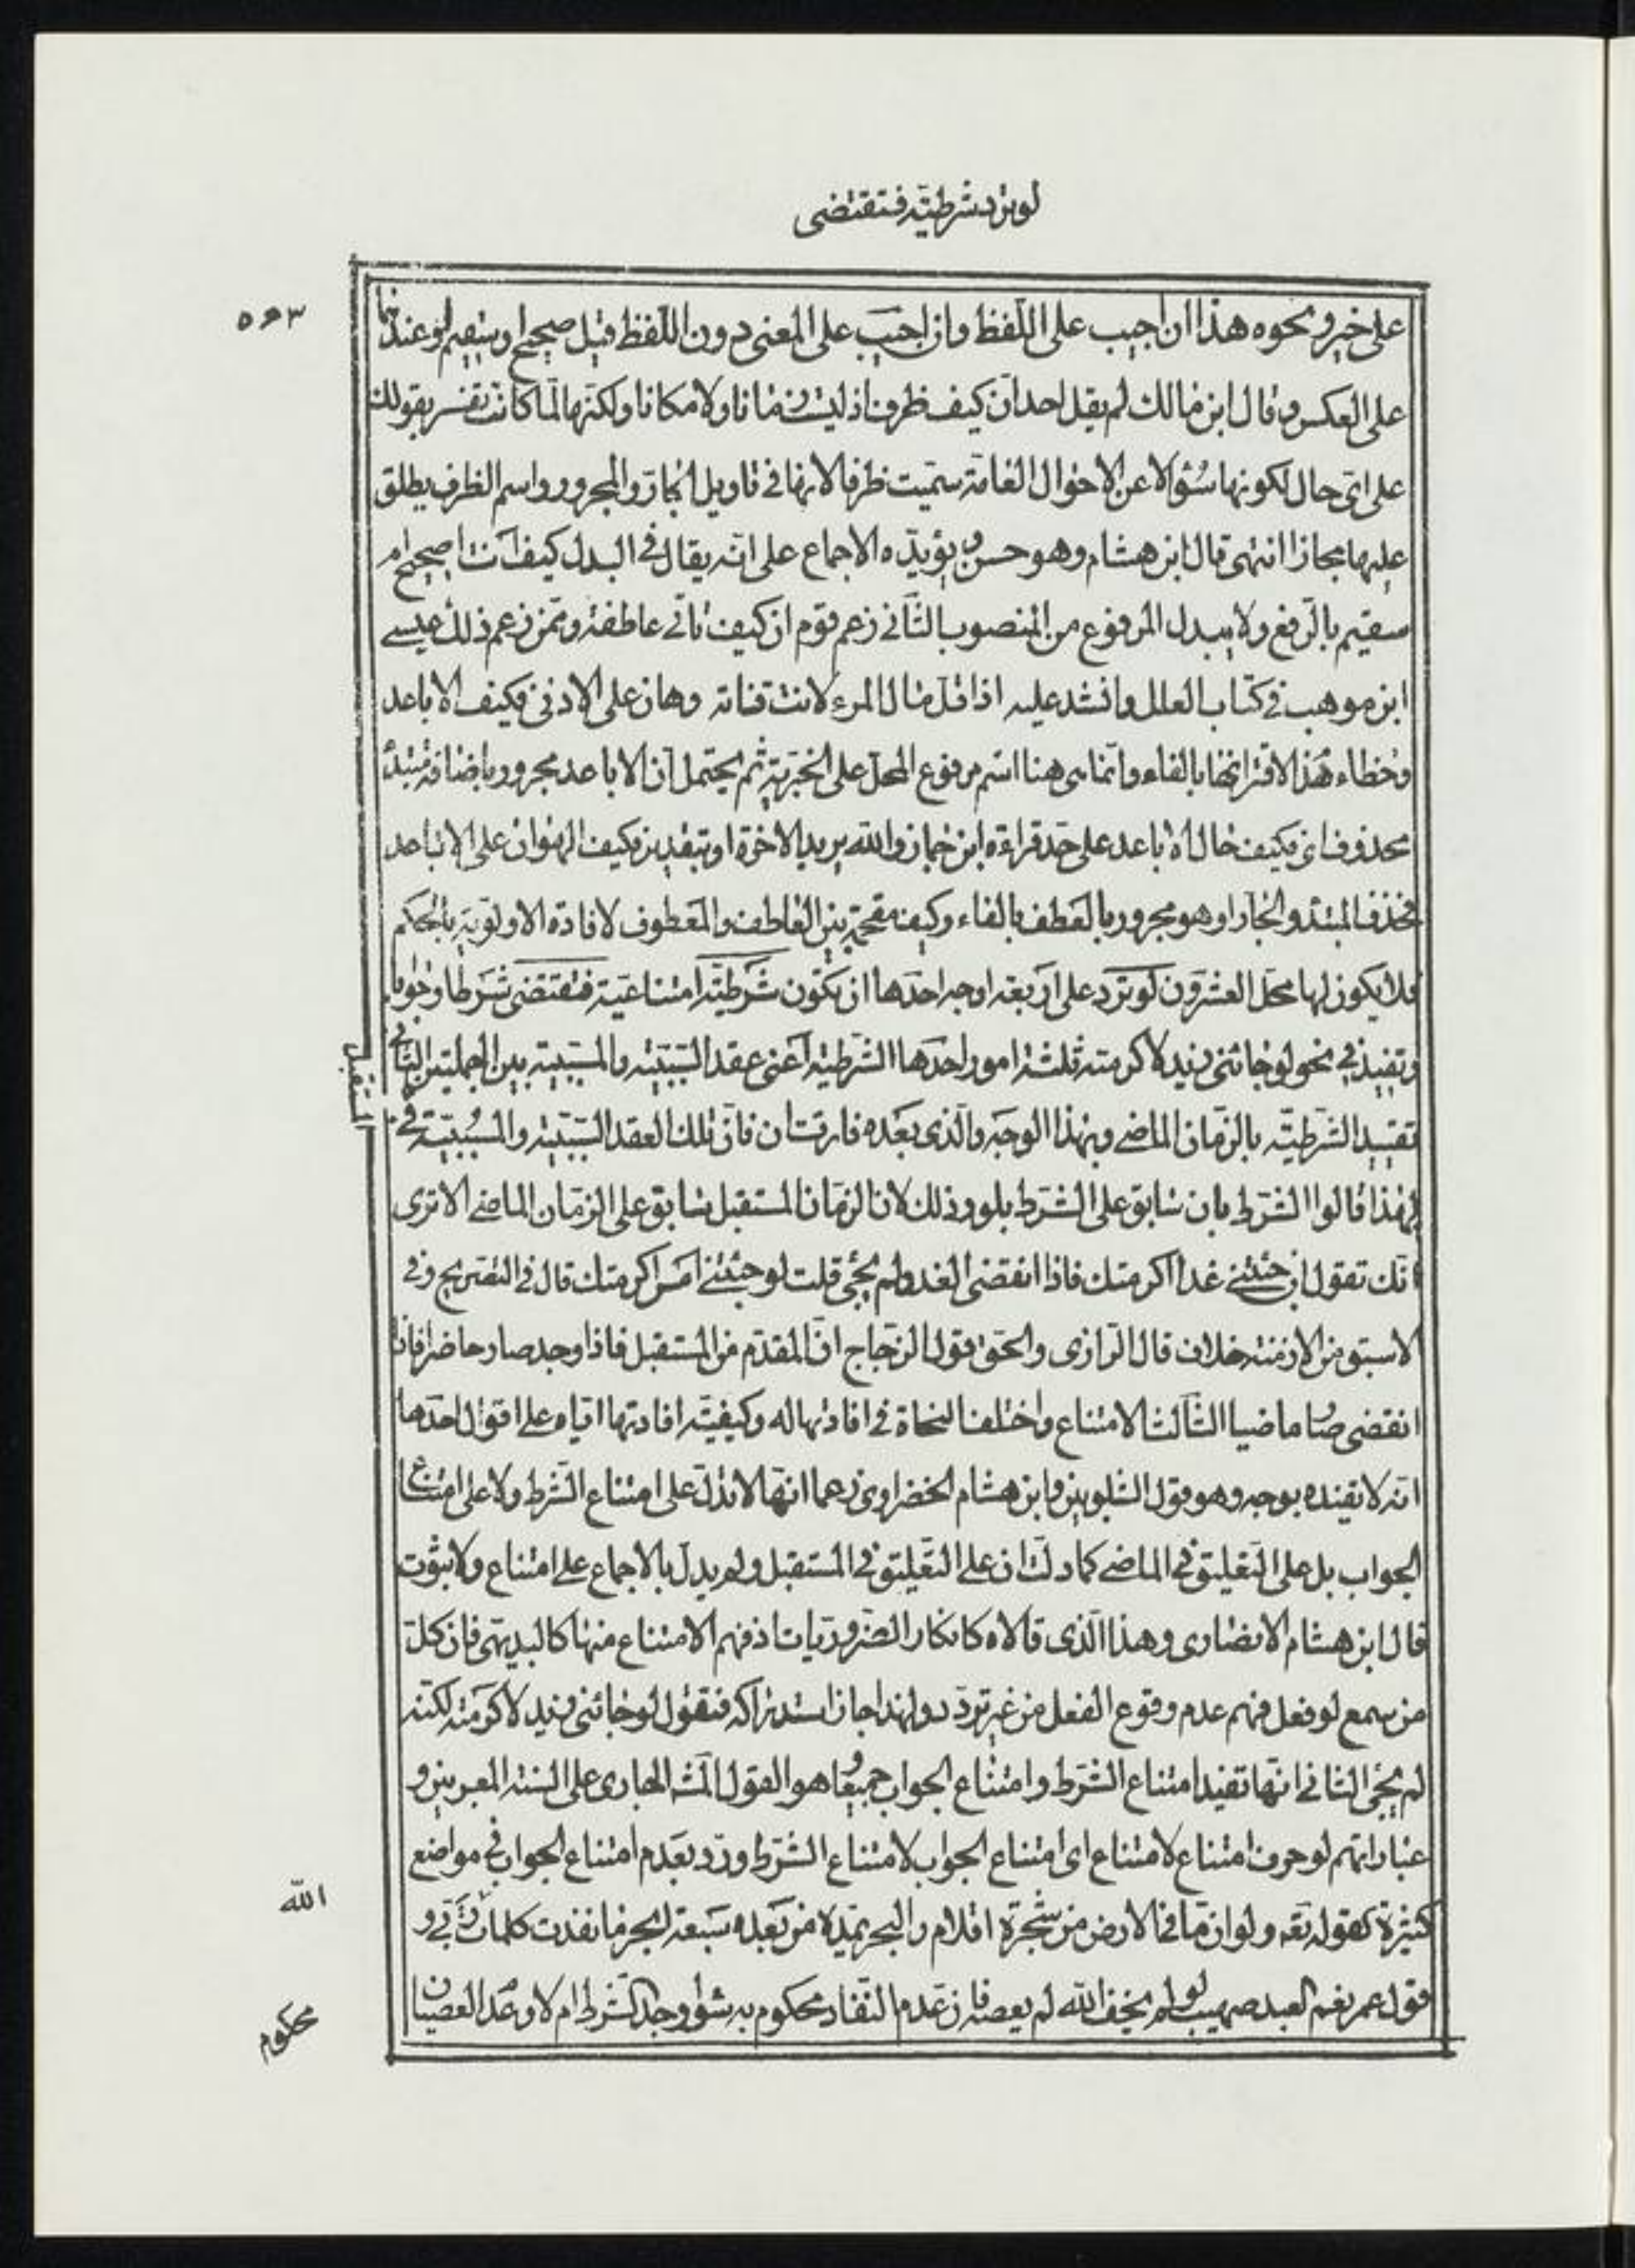 لو ترد شرطية فتقتضى
٥٩٣
على خير ونحوه هذا ان اجيب على اللفظ وان اجيب على المعنى دون اللفظ قيل صحيح او سقيم لو عندهما
على العكس وقال ابن مالك لم يقل احد ان كيف ظرف اذ ليست زمانا ولا مكانا ولكنها لما كانت تفسر بقولك
على اى حال لكونها سؤالا عن الاحوال العامة سميت ظرفا لانها فى تاويل الجار والمجرور واسم الظرف يطلق
عليها مجازا انتهى قال ابن هشام وهو حسن ويؤيده الاجماع على انه يقال فى البدل كيف انت اصحيح ام
سقيم بالرفع ولا يبدل المرفوع من المنصوب الثانى زعم قوم ان كيف تاتى عاطفة وممن زعم ذلك عيسى
ابن موهب فى كتاب العلل وانشد عليه اذا قل مال المرء لانت قناته وهان على الادنى فكيف الاباعد
وخطاء هذا لاقترانها بالفاء وانما هى هنا اسم مرفوع المحل على الخبرية ثم يحتمل ان الاباعد مجرور باضافة مبتدأ
محذوف اى فكيف حال الاباعد على حد قراءة ابن جماز والله يريد الاخرة او بتقدير فكيف الهوان على الاباعد
فحذف المبتدأ والجار او هو مجرور بالعطف بالفاء وكيف مقحمة بين العاطف والمعطوف لافادة الاولوية بالحكم
فلا يكون لها محل العشرون لو ترد على اربعة اوجه احدها ان تكون شرطية امتناعية فتقتضى شرطا وجوابا
وتفيد فى نحو لو جائنى زيد لاكرمته ثلثة امور احدها الشرطية اعنى عقد السببية والمسببية بين الجملتين الثانى
تقييد الشرطية بالزمان الماضى وبهذا الوجه والذى بعده فارقت ان فان تلك لعقد السببية والمسببية فى
المستقبل
لهذا قالوا الشرط بان سابق على الشرط بلو وذلك لان الزمان المستقبل سابق على الزمان الماضى الا ترى
انك تقول ان جئتنى غدا اكرمتك فاذا انقضى الغد ولم يجئ قلت لو جئتنى امس اكرمتك قال فى التصريح وفى
الاسبق من الازمنة خلاف قال الرازى والحق قول الزجاج ان المقدم من المستقبل فاذا وجد صار حاضرا فاذا
انقضى صار ماضيا الثالث الامتناع واختلف النحاة فى افادتها له وكيفية افادتها اياه على اقوال احدها
انه لا تفيده بوجه وهو قول الشلوبين وابن هشام الخضراوى زعما انها لا تدل على امتناع الشرط ولا على امتناع
الجواب بل على التعليق فى الماضى كما دلت ان على التعليق فى المستقبل ولم يدل بالاجماع على امتناع ولا ثبوت
قال ابن هشام الانصارى وهذا الذى قالاه كانكار الضروريات اذ فهم الامتناع منها كالبديهى فان كل
من سمع لو فعل فهم عدم وقوع الفعل من غير تردد ولهذا جاز استدراكه فتقول لو جائنى زيد لاكرمته لكنه
لم يجئ الثانى انها تفيد امتناع الشرط وامتناع الجواب جميعا وهو القول الجارى على السنة المعربين و
عباراتهم لو حرف امتناع لامتناع اى امتناع الجواب لامتناع الشرط ورد بعدم امتناع الجواب فى مواضع
كثيرة كقوله تعه ولو ان ما فى الارض من شجرة اقلام والبحر يمده من بعده سبعة ابحر ما نفدت كلمات
الله
قول عمر نعم العبد صهيب لو لم يخف الله لم يعصه فان عدم النفاد محكوم به سواء وجد الشرط ام لا وعدم العصيان
محكوم